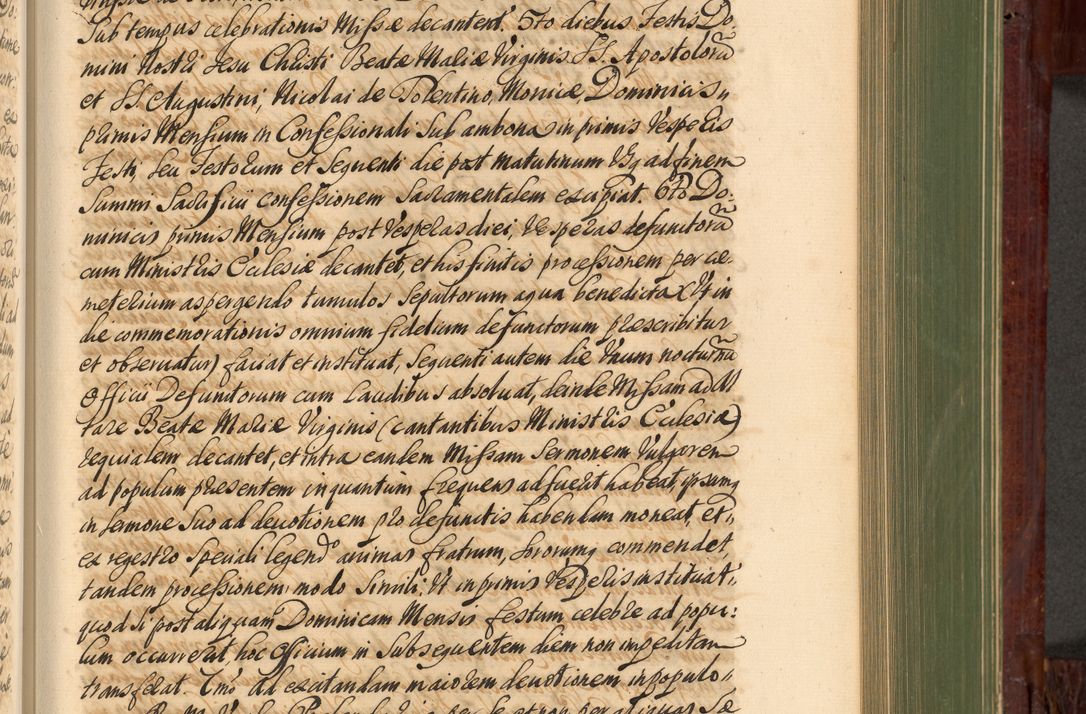 Sub tempus celebrationis Missæ decantent. 5to diebus Festis Do-
mini Nostri Jesu Christi Beatæ Mariæ Virginis SS. Apostolorũ
et SS. Augustini, Nicolai de Tolentino, Monicæ, Dominicis
primis Mensium in Confessionali Sub ambona in primis Vesperis
Festi, seu Festorum et Sequenti die post matutinum Usq ad finem
Summi Sacrificii confessionem Sacramentalem excipiat. 6to Do-
minicis primis Mensium post Vesperas diei, Vesperas defunctorũ
cum Ministris Ecclesiæ decantet, et his finitis processionem per cæ-
meterium aspergendo tumulos Sepultorum aqua benedicta (Ut in
die commemorationis omnium fidelium defunctorum præscribitur
et observatur) faciat et instituat, Sequenti autem die Unum nocturnũ
Officii Defunctorum cum Laudibus absolvat, deinde Missam ad Al
tare Beatæ Mariæ Virginis (cantantibus Ministris Ecclesiæ)
requialem decantet, et intra eandem Missam Sermonem Vulgarem
ad populum præsentem inquantum frequens adfuerit habeat, ipsumq
in sermone Suo ad devotionem pro defunctis habendam moneat, et
ex regestro Speciali legend animas fratrum, Sororumq commendet,
tandem processionem modo Simili, Ut in primis Vesperis instituat
quod si post aliquam Dominicam Mensis festum celebre ad popu:
lum occurrerit, hoc Officium in Subsequentem diem non impeditam
transferat. 7mo ad excitandam maiorem devotionem in populo